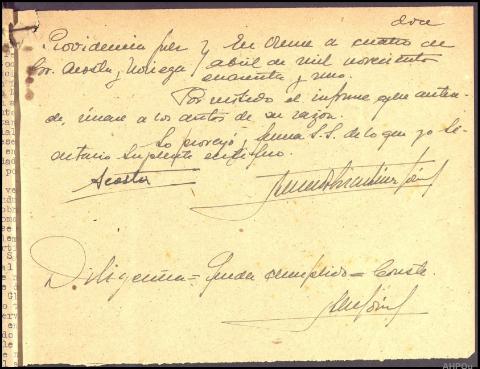 doce
Providencia Juez } En Orense a cuatro de
Sr. Acosta y Noriega } abril de mil novecientos
cincuenta y uno.
Por recibido el informe que antece-
de, únase a los autos de su razón.
Lo proveyó, firma S.S. de lo que yo Se-
cretario Suplente certifico.
Acosta
Diligencia = Queda cumplido = Conste.
AHPOu